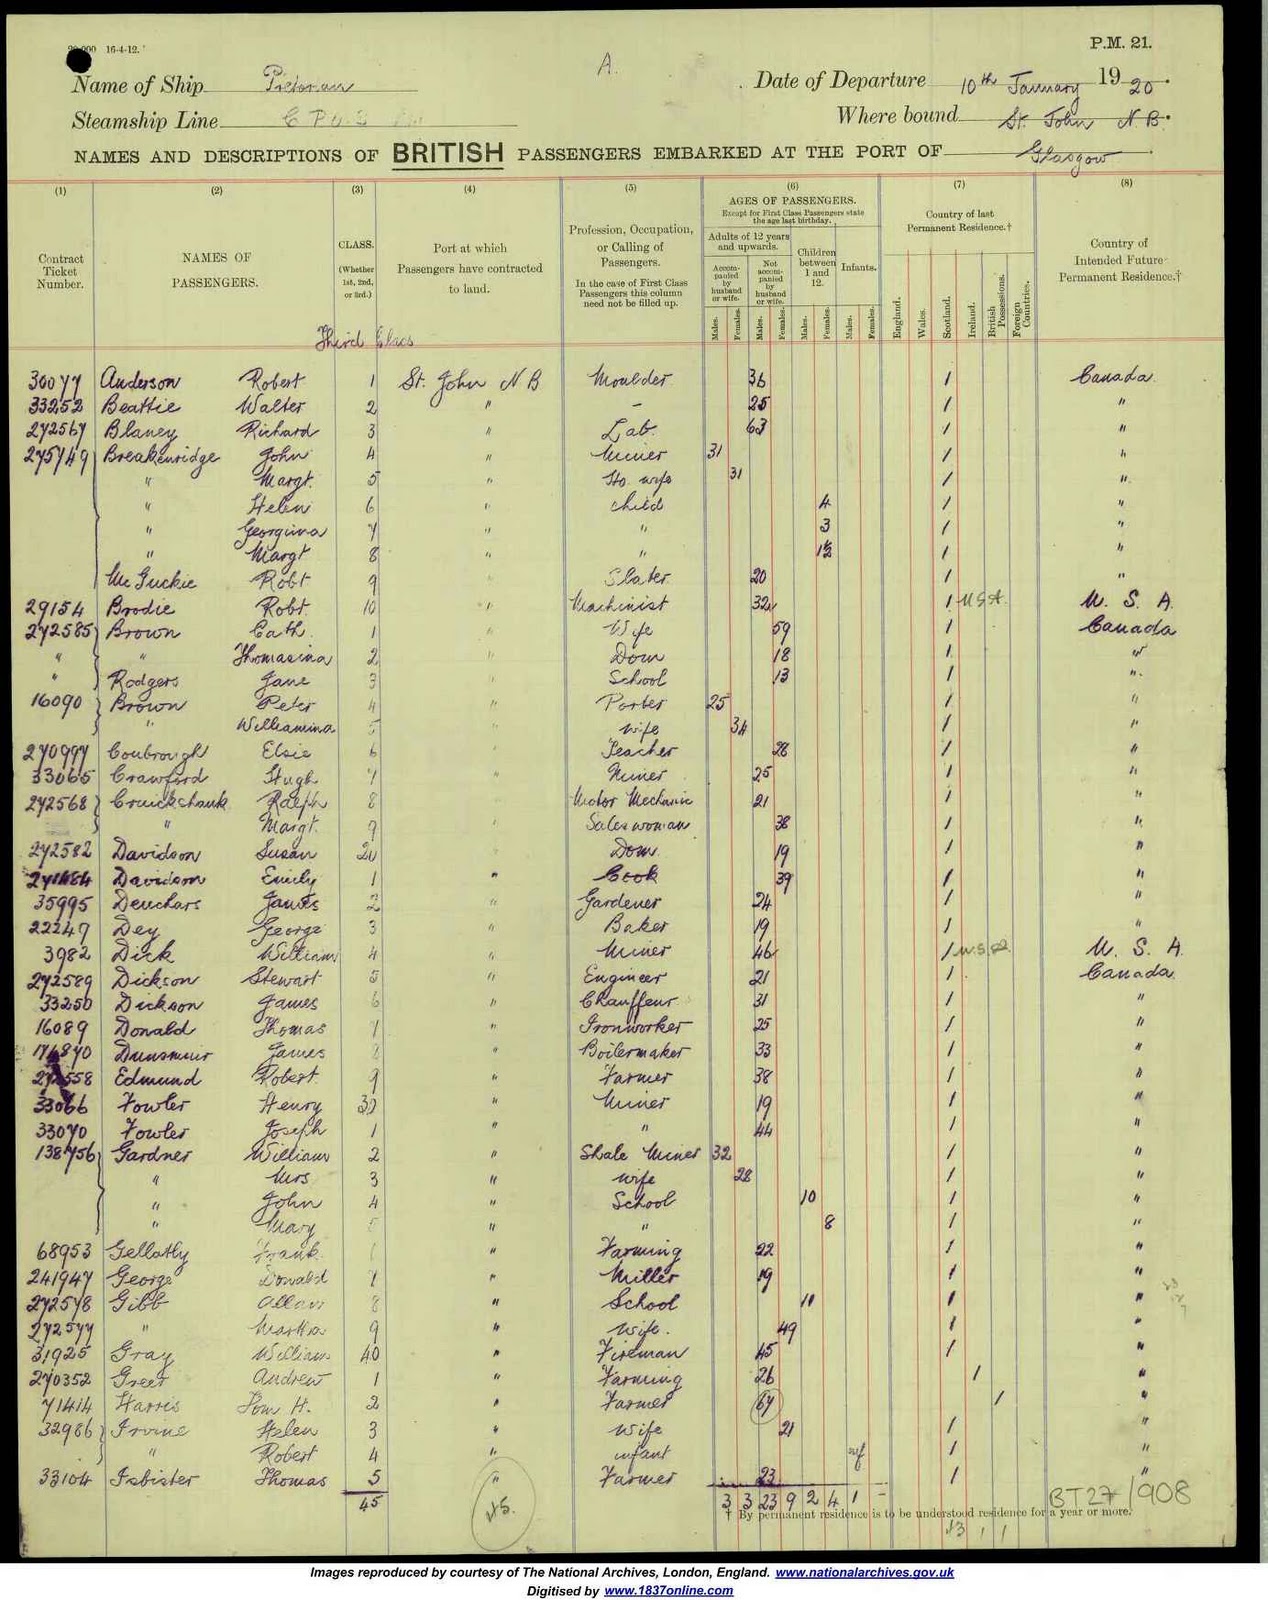 20,000 16-4-12.
P.M. 21.
A.
Name of Ship Pretorian
Date of Departure 10th January 1920
Steamship Line C P O S
Where bound St. John N B.
NAMES AND DESCRIPTIONS OF BRITISH PASSENGERS EMBARKED AT THE PORT OF Glasgow
(1) (2) (3) (4) (5) (6) (7) (8)
Contract Ticket Number.
NAMES OF PASSENGERS.
CLASS. (Whether 1st, 2nd, or 3rd.)
Port at which Passengers have contracted to land.
Profession, Occupation, or Calling of Passengers.
In the case of First Class Passengers this column need not be filled up.
AGES OF PASSENGERS.
Except for First Class Passengers state the age last birthday.
Adults of 12 years and upwards.
Accompanied by husband or wife.
Not accompanied by husband or wife.
Children between 1 and 12.
Infants.
Males. Females. Males. Females. Males. Females. Males. Females.
Country of last Permanent Residence.†
England. Wales. Scotland. Ireland. British Possessions. Foreign Countries.
Country of Intended Future Permanent Residence.†
Third Class
30077 Anderson Robert 1 St. John N B Moulder 36 / Canada
33252 Beattie Walter 2 " - 25 / "
272567 Blaney Richard 3 " Lab. 63 / "
275749 Breakenridge John 4 " Miner 31 / "
" Margt. 5 " Ho. wife 31 / "
" Helen 6 " child 4 / "
" Georgina 7 " " 3 / "
" Margt 8 " " 1½ / "
McGuckie Robt 9 Slater 20 / "
29154 Brodie Robt 10 " Machinist 32 / U.S.A. U. S. A.
272585 Brown Cath. 1 " Wife 59 / Canada
" " Thomasina 2 " Dom 18 / "
" Rodgers Jane 3 " School 13 / "
16090 Brown Peter 4 " Porter 25 / "
" Williamina 5 " wife 34 / "
270997 Coubrough Elsie 6 " Teacher 28 / "
33065 Crawford Hugh 7 " Miner 25 / "
272568 Cruickshank Ralph 8 " Motor Mechanic 21 / "
" Margt. 9 " Saleswoman 38 / "
272582 Davidson Susan 20 " Dom. 19 / "
271484 Davidson Emily 1 " Cook 39 / "
35995 Deuchars James 2 " Gardener 24 / "
22249 Dey George 3 " Baker 19 / "
3982 Dick William 4 " Miner 46 / U. S. A.
272589 Dickson Stewart 5 " Engineer 21 / Canada
33250 Dickson James 6 " Chauffeur 31 / "
16089 Donald Thomas 7 " Ironworker 25 / "
Dunsmuir James 8 " Boilermaker 33 / "
272558 Edmund Robert 9 " Farmer 38 / "
33066 Fowler Henry 30 " Miner 19 / "
33070 Fowler Joseph 1 " " 44 / "
138756 Gardner William 2 " Shale Miner 32 / "
" Mrs 3 " wife 28 / "
" John 4 " School 10 / "
" Mary 5 " " 8 / "
68953 Gellatly Frank 6 " Farming 22 / "
241947 George Donald 7 " Miller 19 / "
272578 Gibb Allan 8 " School 10 / "
272577 " Martha 9 " wife. 49 / "
31925 Gray William 40 " Fireman 45 / "
270352 Greer Andrew 1 " Farming 26 / "
71414 Harris Tom H. 2 " Farmer 67 / "
32986 Irvine Helen 3 " Wife 21 / "
" Robert 4 " infant inf / "
33104 Isbister Thomas 5 " Farmer 23 / "
45 45. 3 3 23 9 2 4 1 -
BT27/908
† By permanent residence is to be understood residence for a year or more.
43 1 1
Images reproduced by courtesy of The National Archives, London, England. www.nationalarchives.gov.uk
Digitised by www.1837online.com